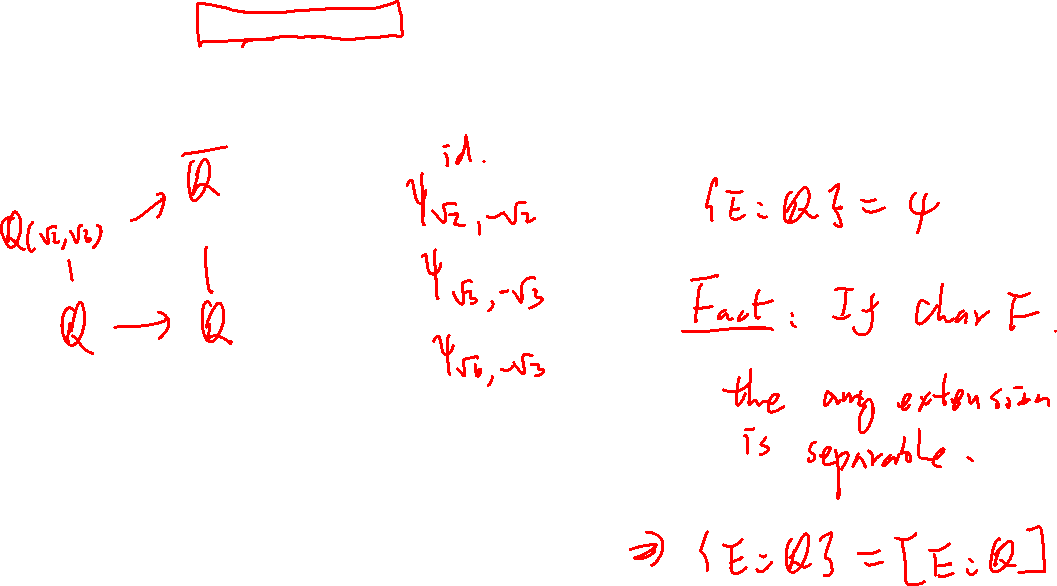 ℚ̅
ℚ(√2,√3)
ℚ → ℚ
id.
ψ√2,-√2
ψ√3,-√3
ψ√6,-√3
{E:ℚ} = 4
Fact: If char F.
the any extension
is separable.
⇒ {E:ℚ} = [E:ℚ]